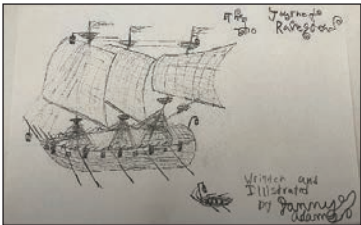 The Journey
To Ravegon
Written and
Illistrated
by Jammy
adams